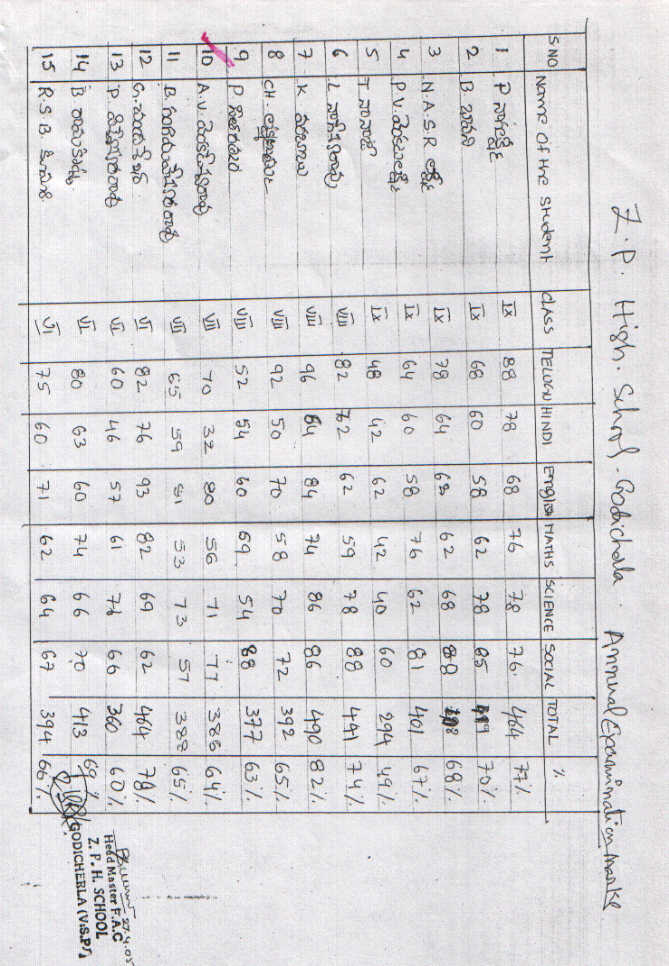 Z.P. High. School. Godichala. Annual Examination Marks
S.NO Name of the Student CLASS TELUGU HINDI English MATHS SCIENCE SOCIAL TOTAL %
1 P IX 88 78 68 76 78 76 464 77%
2 B IX 68 60 58 62 78 419 70%
3 N.A.S.R లక్ష్మి IX 78 64 68 62 68 68%
4 P.V. వరలక్ష్మి IX 64 60 58 76 62 81 401 67%
5 T నానాజీ IX 48 42 62 42 40 60 294 49%
6 L నాగేశ్వరరావు VIII 82 72 62 59 78 88 441 74%
7 K VIII 96 64 84 74 86 86 490 82%
8 CH. VIII 92 50 70 58 70 72 392 65%
9 P VIII 52 54 60 69 54 88 377 63%
10 A.V. వెంకటేశ్వరరావు VII 70 32 80 56 71 77 64%
11 B VII 65 59 81 53 73 57 388 65%
12 G. VI 82 76 93 82 69 62 464 78%
13 P VI 60 46 57 61 66 360 60%
14 B రామకృష్ణ VI 80 63 60 74 66 70 413 69%
15 R.S.B. కుమారి VI 75 60 71 62 64 67 394 66%
27.4.05
Head Master F.A.C
Z. P. H. SCHOOL
GODICHERLA (VIS.P)